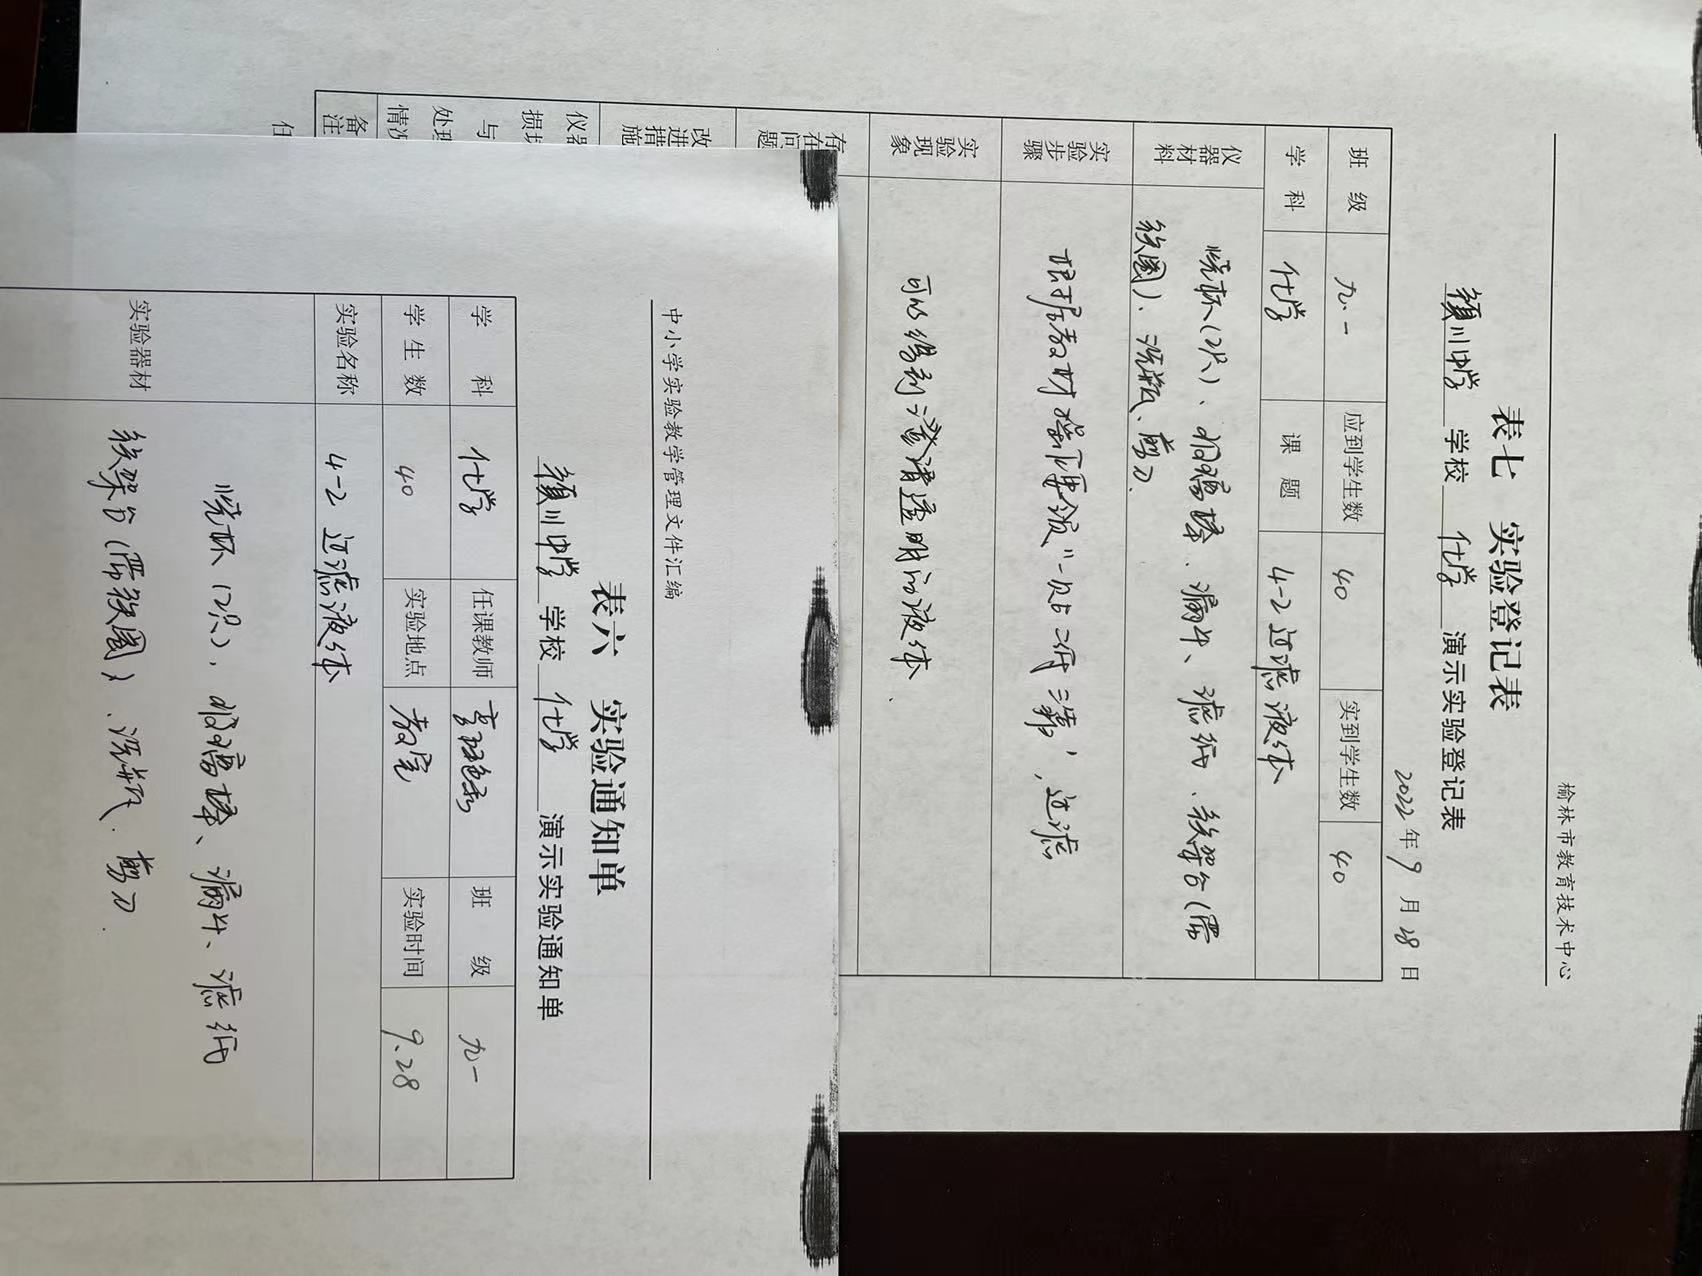 榆林市教育技术中心
表七 实验登记表
颍川中学 学校 化学 演示实验登记表
2022年9月28日
班 级 九.一 应到学生数 40 实到学生数 40
学 科 化学 课 题 4-2过滤液体
仪器材料
烧杯(2只)、玻璃棒、漏斗、滤纸、铁架台(带
铁圈)、洗瓶、剪刀.
实验步骤
根据教材操作要领"一贴二低三靠",过滤
实验现象
可以得到澄清透明的液体.
存在问题
改进措施
仪器
损坏
与
处理
情况
备注
任
中小学实验教学管理文件汇编
表六 实验通知单
颍川中学 学校 化学 演示实验通知单
学 科 化学 任课教师 班 级 九一
学 生 数 40 实验地点 教室 实验时间 9.28
实验名称 4-2 过滤液体
实验器材
烧杯(2只),玻璃棒、漏斗、滤纸
铁架台(带铁圈)、洗瓶、剪刀.